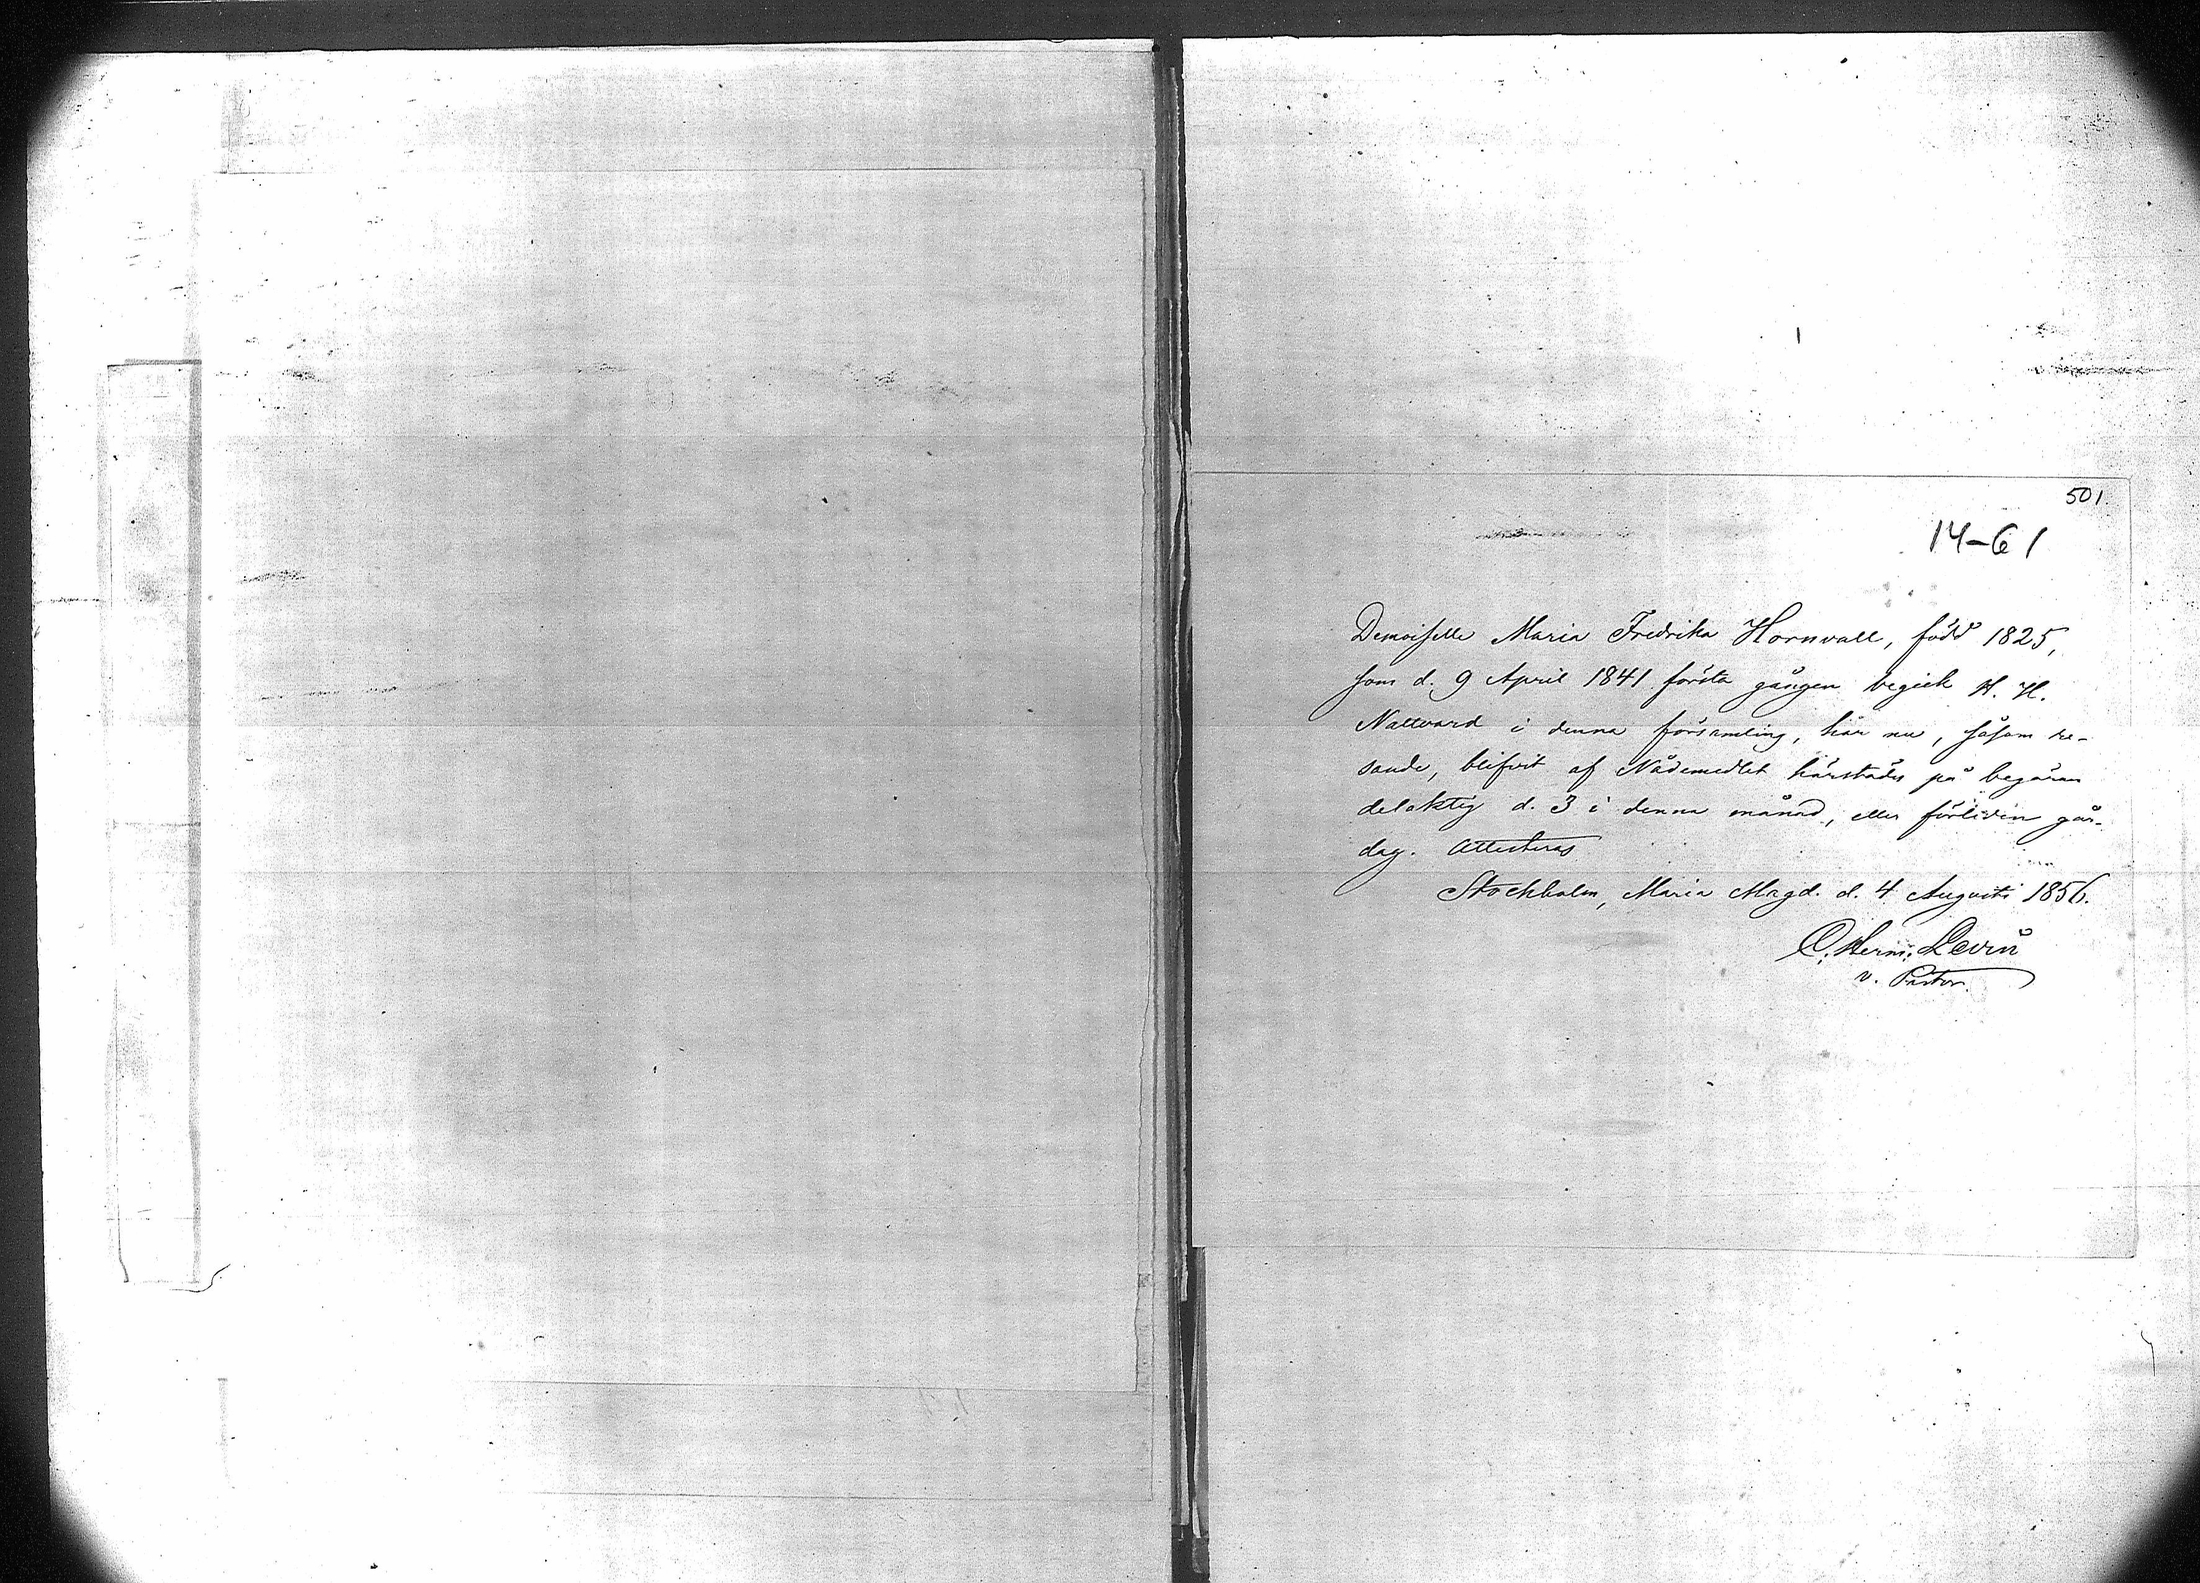 501.
14-61
Demoiselle Maria Fredrika Hornvall, född 1825,
som d. 9 April 1841 första gången begick H. H.
Nattvard i denna församling, här nu, såsom re-
sande, blifvit af Nådemedlet härstädes på begäran
delaktig d. 3 i denna månad, eller förliden går-
dag. Attesteras
Stockholm, Maria Magd. d. 4 Augusti 1856.
C. Herm. Levin
v. Pastor.